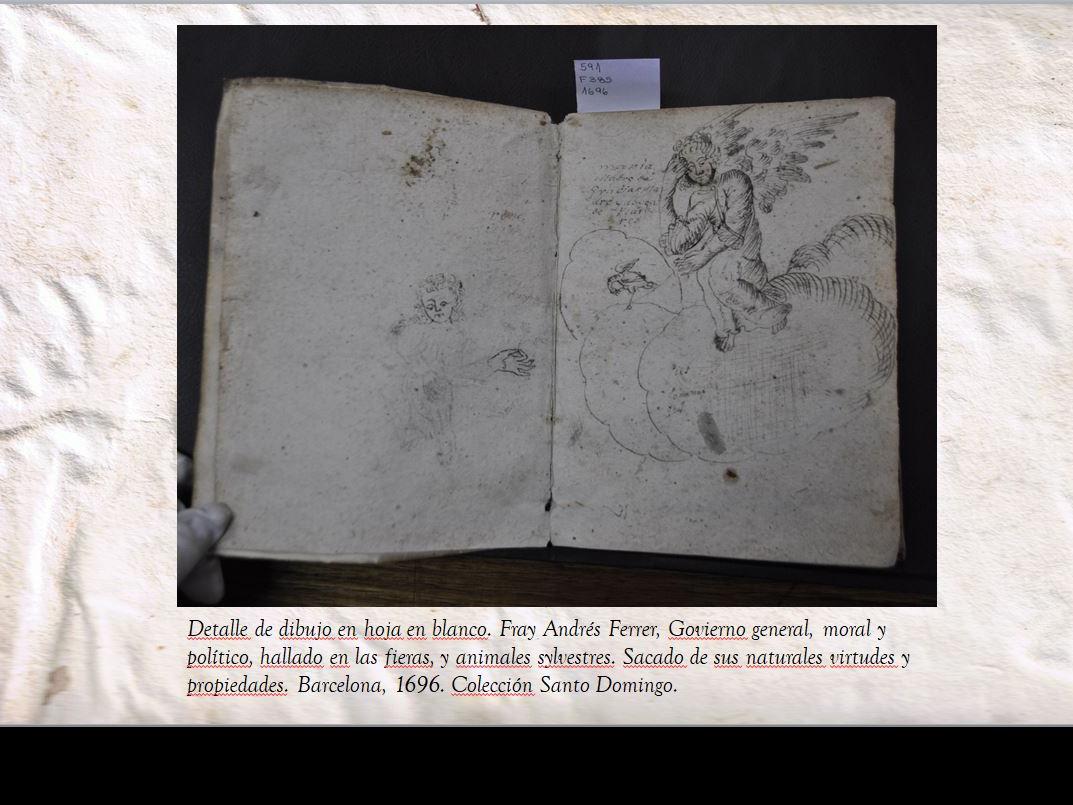 591
F385
1696
Detalle de dibujo en hoja en blanco. Fray Andrés Ferrer, Govierno general, moral y
político, hallado en las fieras, y animales sylvestres. Sacado de sus naturales virtudes y
propiedades. Barcelona, 1696. Colección Santo Domingo.